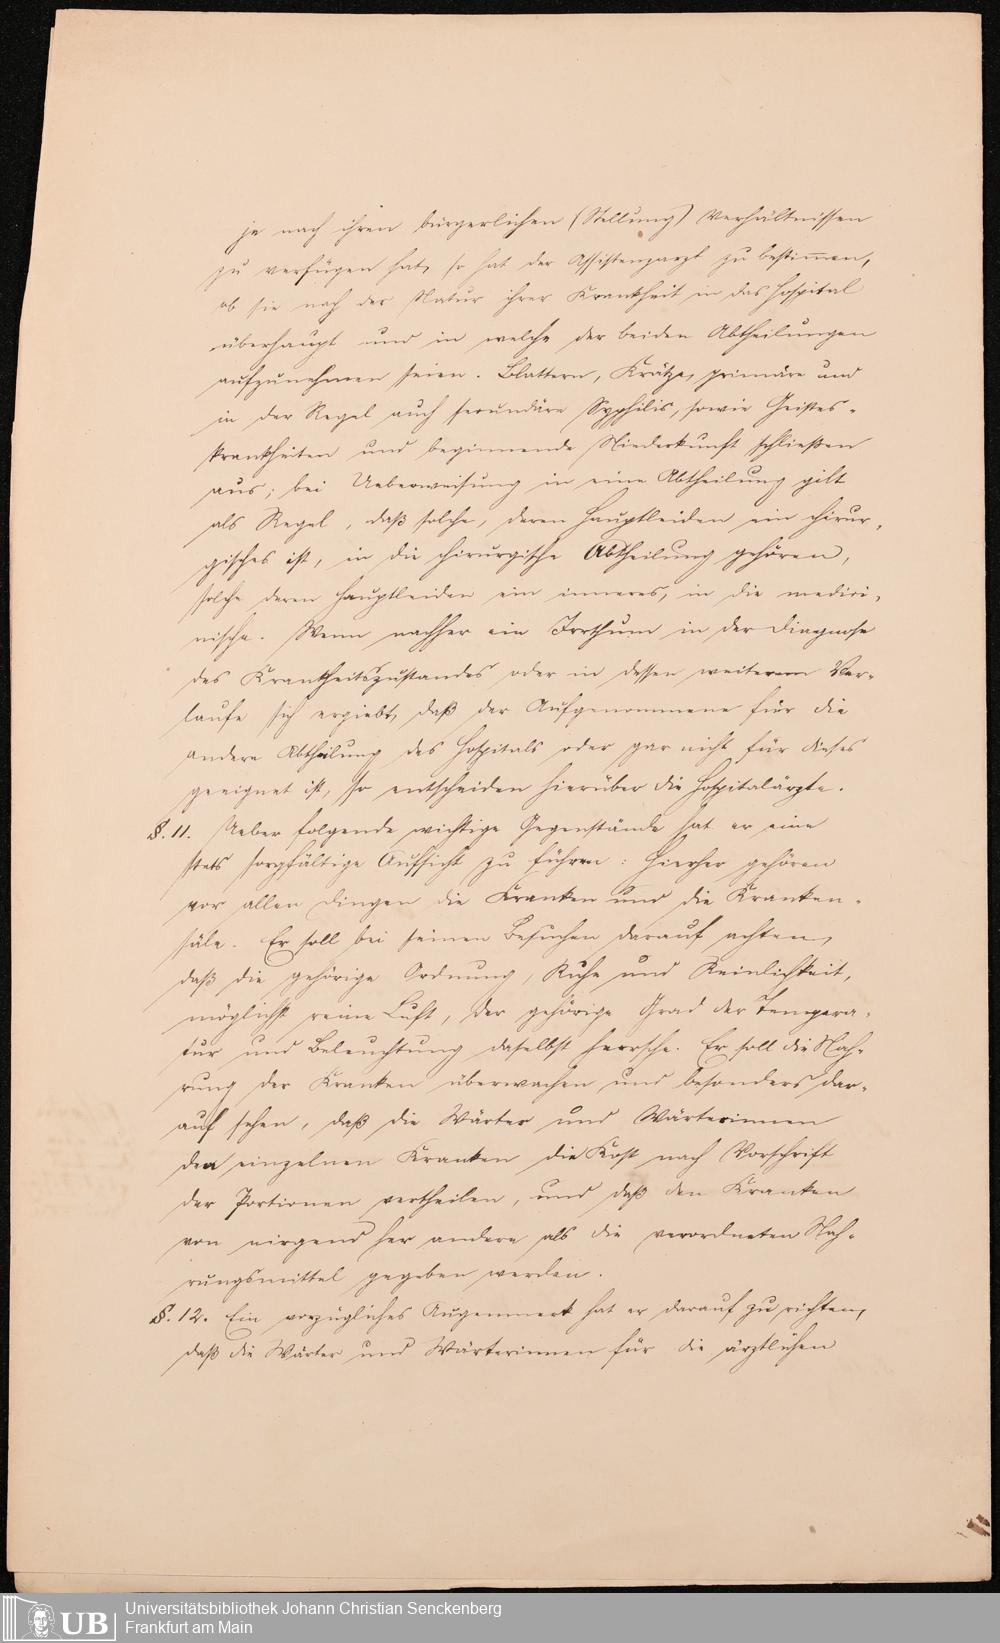 je nach ihren bürgerlichen (Stellung) Verhältnissen
zu verfügen hat, so hat der Assistenzarzt zu bestimmen,
ob sie nach der Natur ihrer Krankheit in das Hospital
überhaupt und in welche der beiden Abtheilungen
aufzunehmen seien. Blattern, Krätze, primäre und
in der Regel auch secundäre Syphilis, sowie Geistes-
krankheiten und beginnende Niederkunft schließen
aus; bei Ueberweisung in eine Abtheilung gilt
als Regel, daß solche, deren Hauptleiden ein chirur-
gisches ist, in die chirurgische Abtheilung gehören,
solche deren Hauptleiden ein inneres, in die medici-
nische. Wenn nachher ein Irrthum in der Diagnose
des Krankheitszustandes oder in dessen weiterem Ver-
laufe sich ergiebt, daß der Aufgenommene für die
andere Abtheilung des Hospitals oder gar nicht für dieses
geeignet ist, so entscheiden hierüber die Hospitalärzte.
§. 11. Ueber folgende wichtige Gegenstände hat er eine
stets sorgfältige Aufsicht zu führen: Hierher gehören
vor allen Dingen die Kranken und die Kranken-
säle. Er soll bei seinen Besuchen darauf achten,
daß die gehörige Ordnung, Ruhe und Reinlichkeit,
möglichst reine Luft, der gehörige Grad der Tempera-
tur und Beleuchtung daselbst herrsche. Er soll die Nah-
rung der Kranken überwachen und besonders dar-
auf sehen, daß die Wärter und Wärterinnen
den einzelnen Kranken die Kost nach Vorschrift
der Portionen vertheilen, und daß den Kranken
von nirgend her andere als die verordneten Nah-
rungsmittel gegeben werden.
§. 12. Ein vorzügliches Augenmerk hat er darauf zu richten,
daß die Wärter und Wärterinnen für die ärztlichen
UB
Universitätsbibliothek Johann Christian Senckenberg
Frankfurt am Main